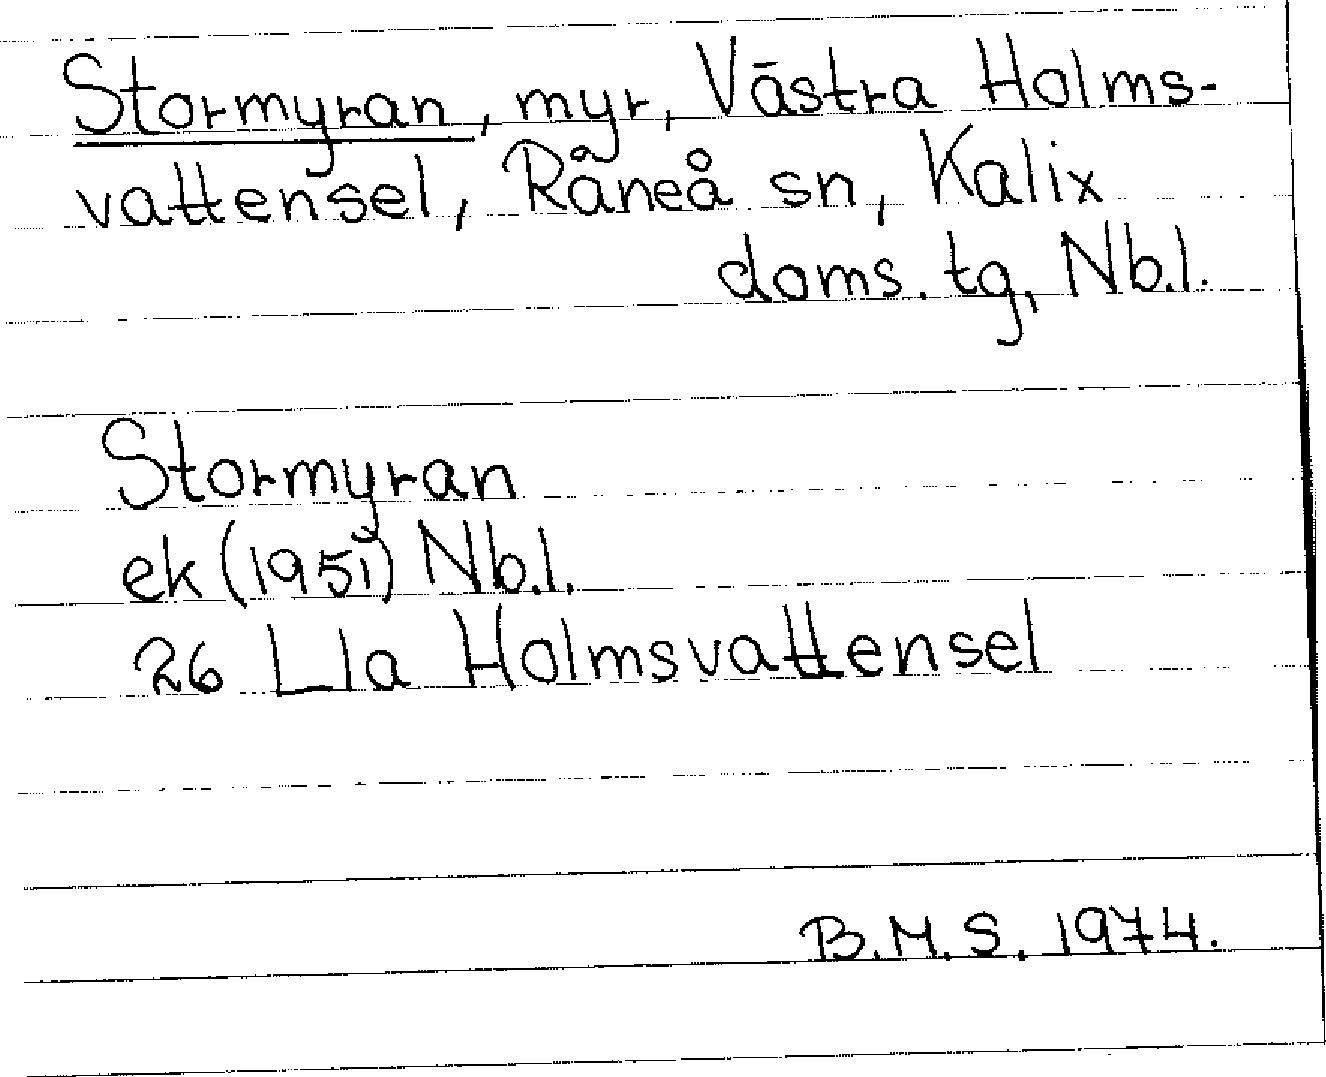 Stormyran, myr, Västra Holms-
vattensel, Råneå sn, Kalix
doms. tg, Nb.l.
Stormyran
ek (1951) Nb.l.
26 Lla Holmsvattensel
B.M.S. 1974.